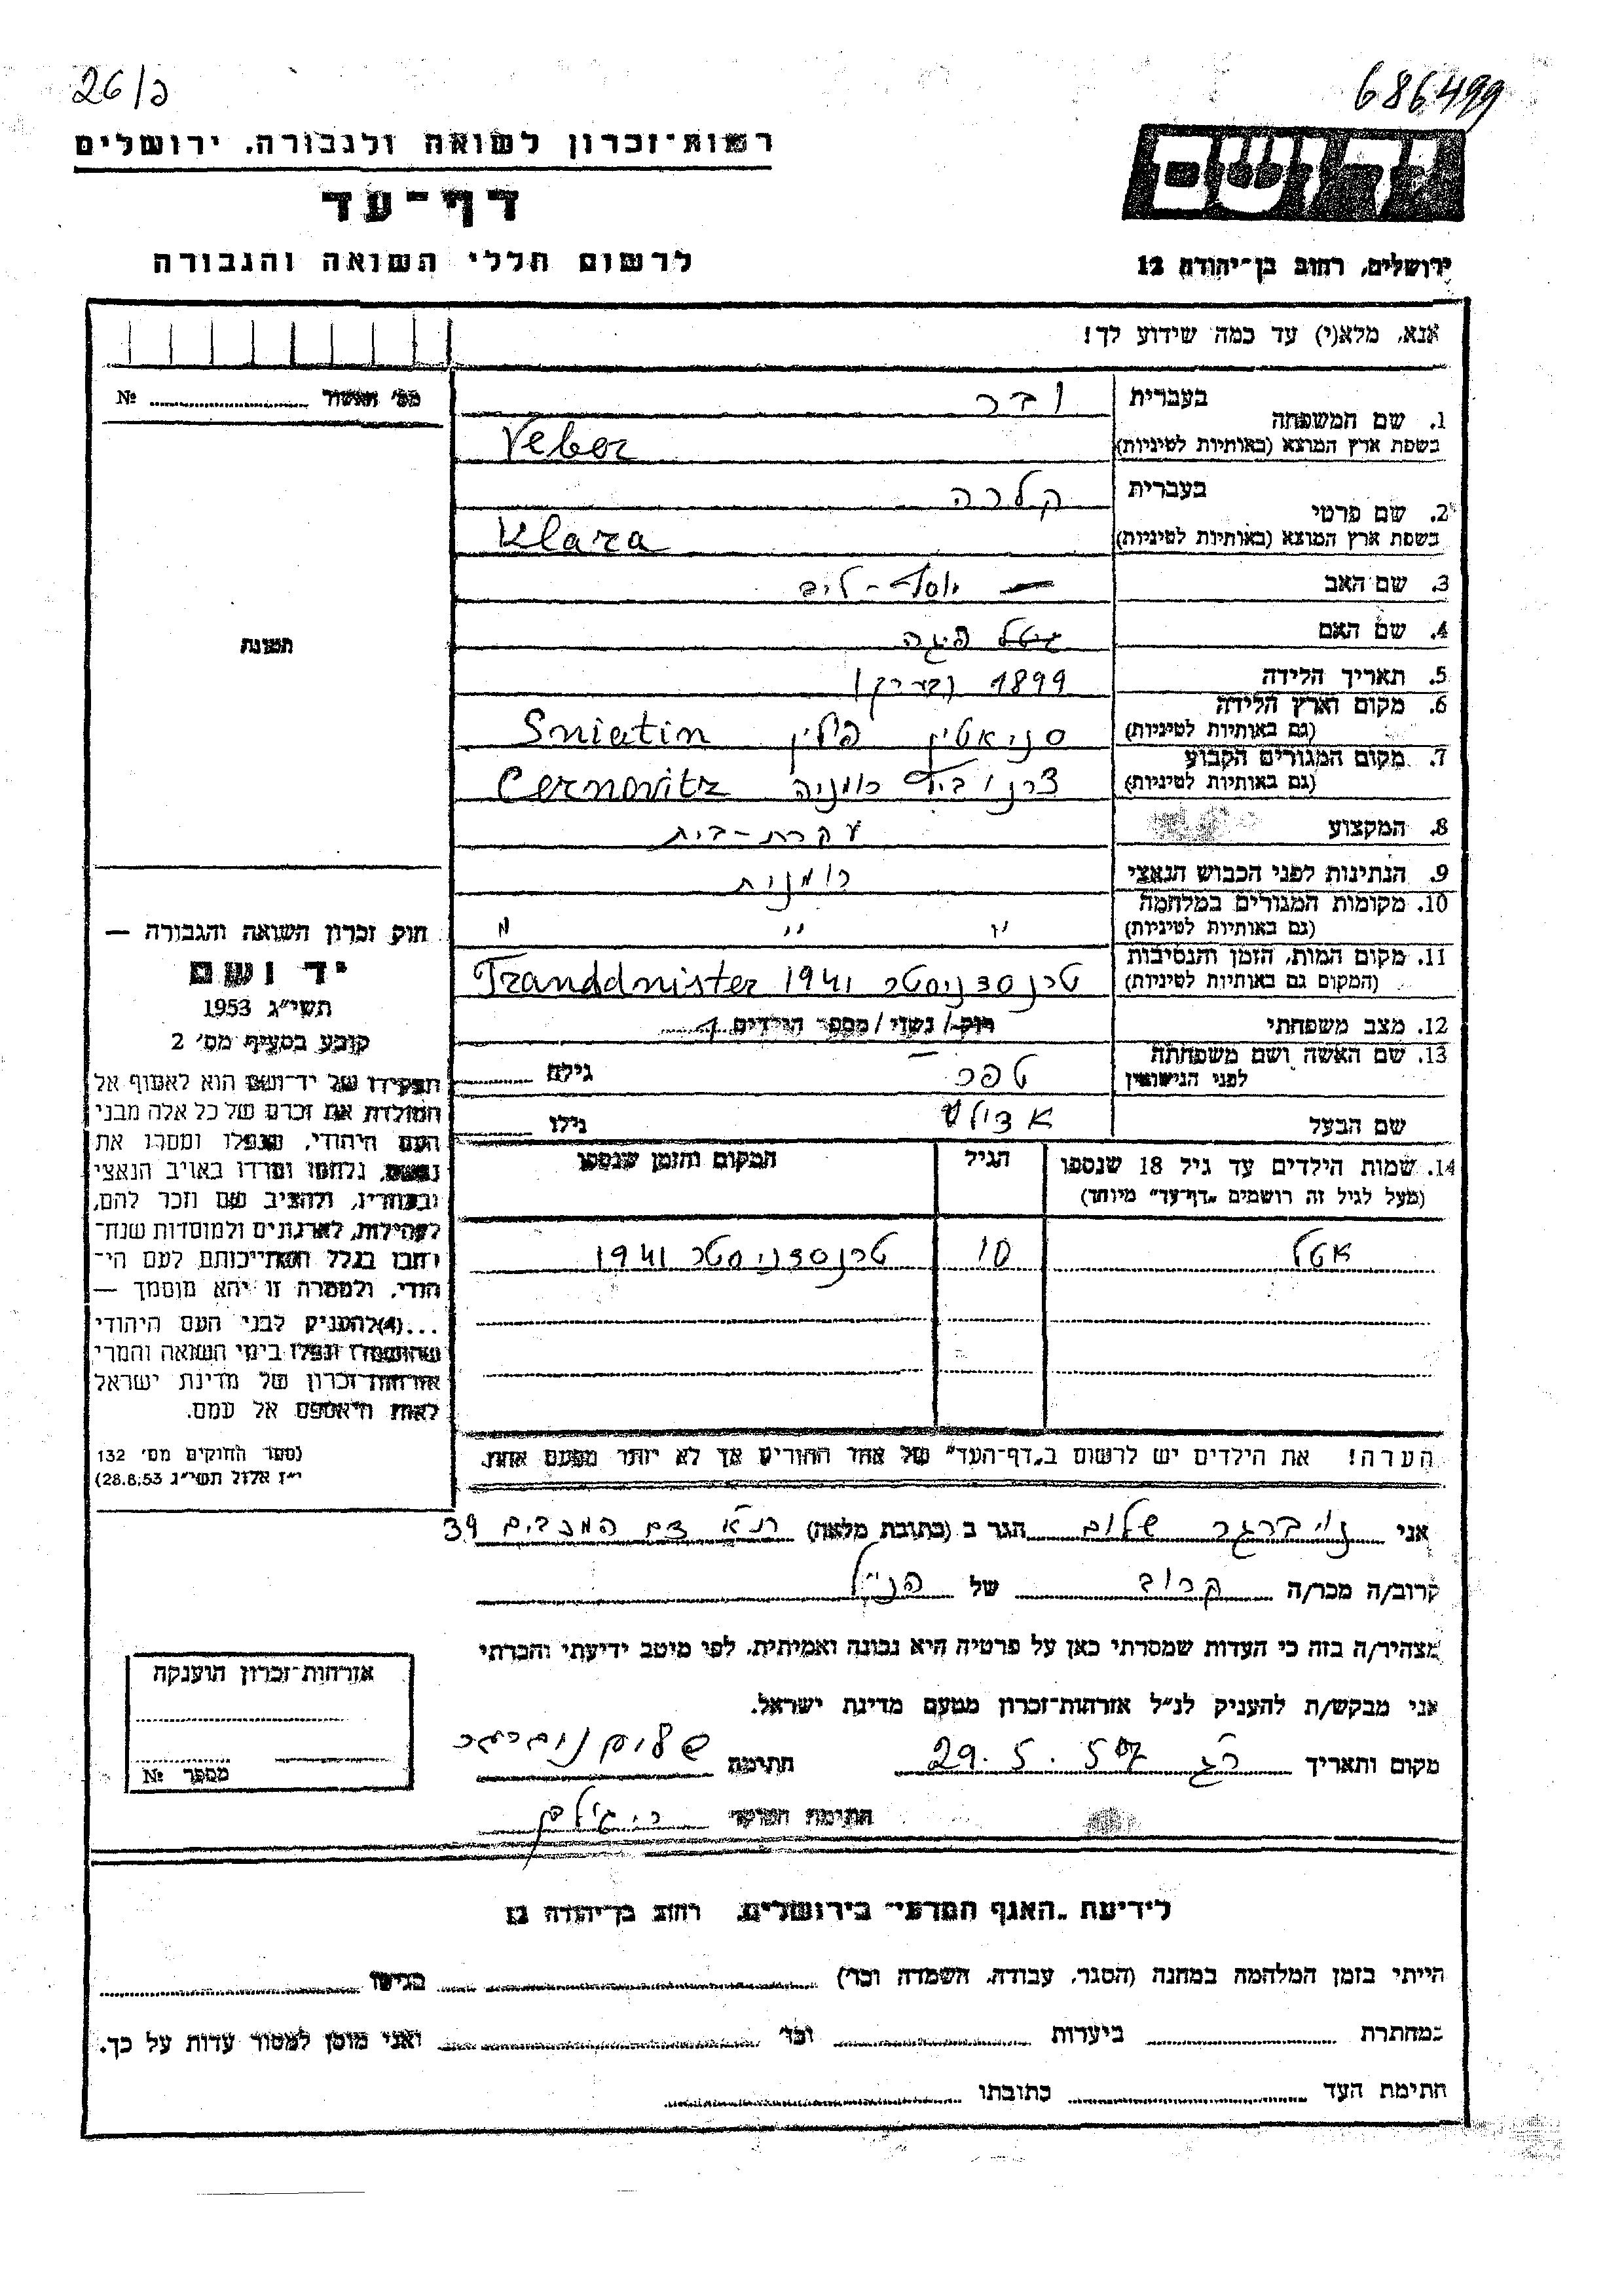 26/כ
686499
רשות־זכרון לשואה ולגבורה, ירושלים
יד ושם
דף־עד
לרשום חללי השואה והגבורה
ירושלים, רחוב בן־יהודה 12
אנא, מלא(י) עד כמה שידוע לך!
מס׳ האשור № ........
1. שם המשפחה
בעברית ובר
בשפת ארץ המוצא (באותיות לטיניות) Veber
2. שם פרטי
בעברית קלרה
בשפת ארץ המוצא (באותיות לטיניות) Klara
3. שם האב — יוסף-ליב
4. שם האם פיגה
5. תאריך הלידה 1899 (בערך)
6. מקום וארץ הלידה
(גם באותיות לטיניות) סניאטין פולין Sniatin
7. מקום המגורים הקבוע
(גם באותיות לטיניות) צרנוביץ רומניה Cernovitz
8. המקצוע עקרת-בית
9. הנתינות לפני הכבוש הנאצי רומנית
10. מקומות המגורים במלחמה
(גם באותיות לטיניות) " " "
11. מקום המות, הזמן והנסיבות
(המקום גם באותיות לטיניות) טרנסדניסטר 1941 Trandddnister
12. מצב משפחתי רוק/ נשוי/ מספר הילדים 1
13. שם האשה ושם משפחתה
לפני הנישואין טפר גילה ........
שם הבעל אדולף גילו ........
14. שמות הילדים עד גיל 18 שנספו
(מעל לגיל זה רושמים „דף־עד” מיוחד)
הגיל
המקום והזמן שנספו
אטל 10 טרנסדניסטר 1941
הערה! את הילדים יש לרשום ב„דף־העד” של אחד ההורים אך לא יותר מפעם אחת.
תמונה
חוק זכרון השואה והגבורה —
יד ושם
תשי״ג 1953
קובע בסעיף מס׳ 2
תפקידו של יד־ושם הוא לאסוף אל
המולדת את זכרם של כל אלה מבני
העם היהודי, שנפלו ומסרו את
נפשם, נלחמו ומרדו באויב הנאצי
ובעוזריו, ולהציב שם וזכר להם,
לקהילות, לארגונים ולמוסדות שנח־
רבו בגלל השתייכותם לעם הי־
הודי, ולמטרה זו יהא מוסמך —
...(4) להעניק לבני העם היהודי
שהושמדו ונפלו בימי השואה והמרי
אזרחות־זכרון של מדינת ישראל
לאות היאספם אל עמם.
(ספר החוקים מס׳ 132
י״ז אלול תשי״ג 28.8.53)
אני נויברגר שלום הגר ב (כתובת מלאה) ת״א המכבים 39
קרוב/ה מכר/ה קרוב של הנ״ל
מצהיר/ה בזה כי העדות שמסרתי כאן על פרטיה היא נכונה ואמיתית, לפי מיטב ידיעתי והכרתי
אני מבקש/ת להעניק לנ״ל אזרחות־זכרון מטעם מדינת ישראל.
מקום ותאריך רג 29.5.57 חתימה שלום נויברגר
חתימת הפוקד
אזרחות־זכרון הוענקה
מספר №
לידיעת „האגף המדעי” בירושלים, רחוב בן־יהודה 12
הייתי בזמן המלחמה במחנה (הסגר, עבודה, השמדה וכד׳) ........ בגיטו ........
במחתרת ........ ביערות ........ וכד׳ ........ ואני מוכן למסור עדות על כך.
חתימת העד ........ כתובתו ........